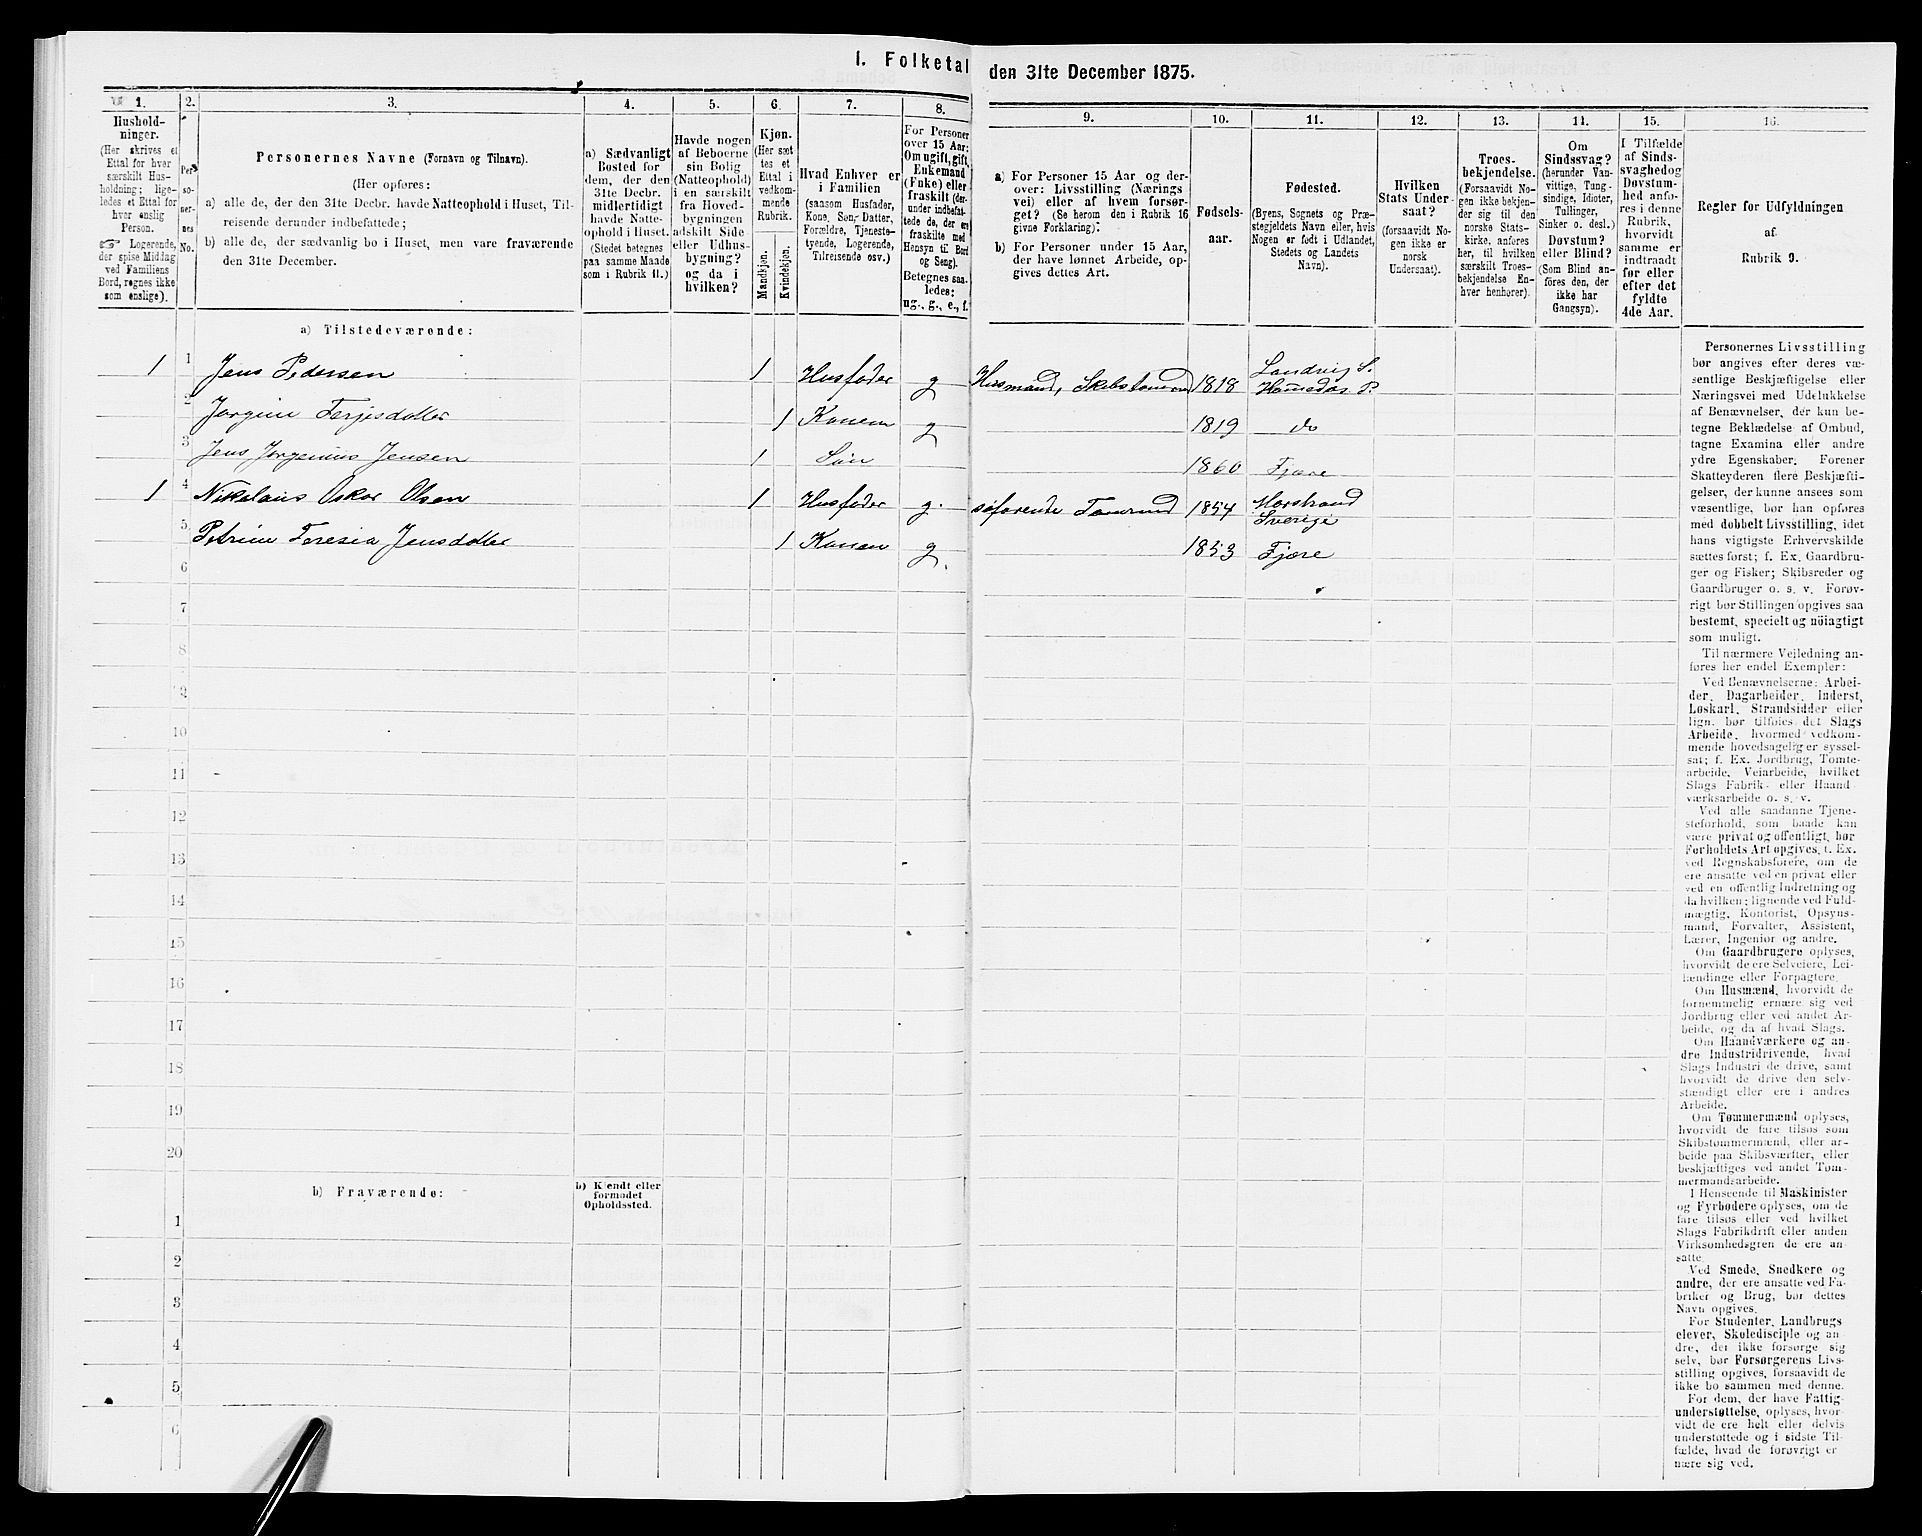 I. Folketal
den 31te December 1875.
1.
Hushold-
ninger.
(Her skrives et
Ettal for hver
særskilt Hus-
holdning; lige-
ledes et Ettal for
hver enslig
Person.
☞ Logerende,
der spise Middag
ved Familiens
Bord, regnes ikke
som enslige).
2.
Per-
so-
ner-
nes
No.
3.
Personernes Navne (Fornavn og Tilnavn).
(Her opføres:
a) alle de, der den 31te Decbr. havde Natteophold i Huset, Til-
reisende derunder indbefattede;
b) alle de, der sædvanlig bo i Huset, men vare fraværende
den 31te December.
4.
a) Sædvanligt
Bosted for
dem, der den
31te Decbr.
midlertidigt
havde Natte-
ophold i Huset.
(Stedet betegnes
paa samme Maade
som i Rubrik 11.)
5.
Havde nogen
af Beboerne
sin Bolig
(Natteophold)
i en særskilt
fra Hoved-
bygningen
adskilt Side
eller Udhus-
bygning?
og da i
hvilken?
6.
Kjøn.
(Her sæt-
tes et
Ettal i
vedkom-
mende
Rubrik.
Mandkjøn.
Kvindekjøn.
7.
Hvad Enhver er
i Familien
(saasom Husfader,
Kone, Søn, Datter,
Forældre, Tjeneste-
tyende, Logerende,
Tilreisende osv.)
8.
For Personer
over 15 Aar:
Om ugift, gift,
Enkemand
(Enke) eller
fraskilt (der-
under indbefat-
tede de, der ere
fraskilte med
Hensyn til Bord
og Seng).
Betegnes saa-
ledes:
ug., g., e., f.
9.
a) For Personer 15 Aar og der-
over: Livsstilling (Nærings
vei) eller af hvem forsør-
get? (Se herom den i Rubrik 16
givne Forklaring):
b) For Personer under 15 Aar,
der have lønnet Arbeide, op-
gives dettes Art.
10.
Fødsels-
aar.
11.
Fødested.
(Byens, Sognets og Præ-
stegjeldets Navn eller, hvis
Nogen er født i Udlandet,
Stedets og Landets
Navn).
12.
Hvilken
Stats Under-
saat?
(forsaavidt No-
gen ikke er
norsk
Undersaat).
13.
Troes-
bekjendelse.
(Forsaavidt No-
gen ikke bekjen-
der sig til den
norske Stats-
kirke, anføres
her, til hvilken
særskilt Troes-
bekjendelse En-
hver henhører).
14.
Om
Sindssvag?
(herunder Van-
vittige, Tung-
sindige, Idioter,
Tullinger,
Sinker o. desl.)
Døvstum?
eller Blind?
(Som Blind an-
føres den, der
ikke har
Gangsyn).
15.
I Tilfælde
af Sinds-
svaghed og
Døvstum-
hed anfø-
res i denne
Rubrik,
hvorvidt
samme er
indtraadt
før eller
efter det
fyldte
4de Aar.
16.
Regler for Udfyldningen
af
Rubrik 9.
a) Tilstedeværende:
1 1 Jens Pedersen 1 Husfader g Husmand, Skibstømmermand 1818 Landvig S.
Homedas P.
2 Jorgine Terjesdatter 1 Konen g 1819 do
3 Jens Jørgenius Jensen 1 Søn 1860 Fjære
1 4 Nikolaus Oskar Olsen 1 Husfader g. søfarende Tømmermand 1854 Marstrand
Sverige
5 Petrine Teresia Jensdatter 1 Konen g. 1853 Fjære
6
7
8
9
10
11
12
13
14
15
16
17
18
19
20
b) Fraværende:
b) Kjendt eller
formodet
Opholdssted.
1
2
3
4
5
6
Personernes Livsstilling
bør angives efter deres væ-
sentlige Beskjæftigelse eller
Næringsvei med Udelukkelse
af Benævnelser, der kun be-
tegne Beklædelse af Ombud,
tagne Examina eller andre
ydre Egenskaber. Forener
Skatteyderen flere Beskjæfti-
gelser, der kunne ansees som
væsentlige, bør han opføres
med dobbelt Livsstilling, idet
hans vigtigste Erhvervskilde
sættes først; f. Ex. Gaardbru-
ger og Fisker; Skibsreder og
Gaardbruger o. s. v. Forøv-
rigt bør Stillingen opgives saa
bestemt, specielt og nöiagtigt
som muligt.
Til nærmere Veiledning an-
føres her endel Exempler:
Ved Benævnelserne: Arbei-
der, Dagarbeider, Inderst,
Løskarl, Strandsidder eller
lign. bør tilføies det Slags
Arbeide, hvormed vedkom-
mende hovedsagelig er syssel-
sat; f. Ex. Jordbrug, Tomte-
arbeide, Veiarbeide, hvilket
Slags Fabrik- eller Haand-
værksarbeide o. s. v.
Ved alle saadanne Tjene-
steforhold, som baade kan
være privat og offentligt, bør
Forholdets Art opgives, f. Ex.
ved Regnskabsførere, om de
ere ansatte ved en privat eller
ved en offentlig Indretning og
da hvilken; lignende ved Fuld-
mægtig, Kontorist, Opsyns-
mand, Forvalter, Assistent,
Lærer, Ingeniør og andre.
Om Gaardbrugere oplyses,
hvorvidt de ere Selveiere, Lei-
lændinge eller Forpagtere.
Om Husmænd, hvorvidt de
fornemmelig ernære sig ved
Jordbrug eller ved andet Ar-
beide, og da af hvad Slags.
Om Haandværkere og an-
dre Industridrivende, hvad
Slags Industri de drive, samt
hvorvidt de drive den selv-
stændigt eller ere i andres
Arbeide.
Om Tømmermænd oplyses,
hvorvidt de fare tilsøs som
Skibstømmermænd, eller ar-
beide paa Skibsværfter, eller
beskjæftiges ved andet Tøm-
mermandsarbeide.
I Henseende til Maskinister
og Fyrbødere oplyses, om de
fare tilsøs eller ved hvilket
Slags Fabrikdrift eller anden
Virksomhedsgren de ere an-
satte.
Ved Smede, Snedkere og
andre, der ere ansatte ved Fa-
briker og Brug, bør dettes
Navn opgives.
For Studenter, Landbrugs-
elever, Skoledisciple og an-
dre, der ikke forsørge sig
selv, bør Forsørgerens Livs-
stilling opgives, forsaavidt de
ikke bo sammen med denne.
For dem, der have Fattig-
understøttelse, oplyses, hvor-
vidt de ere helt eller delvis
understøttede og i sidste Til-
fælde, hvad de forøvrigt er-
nære sig ved.